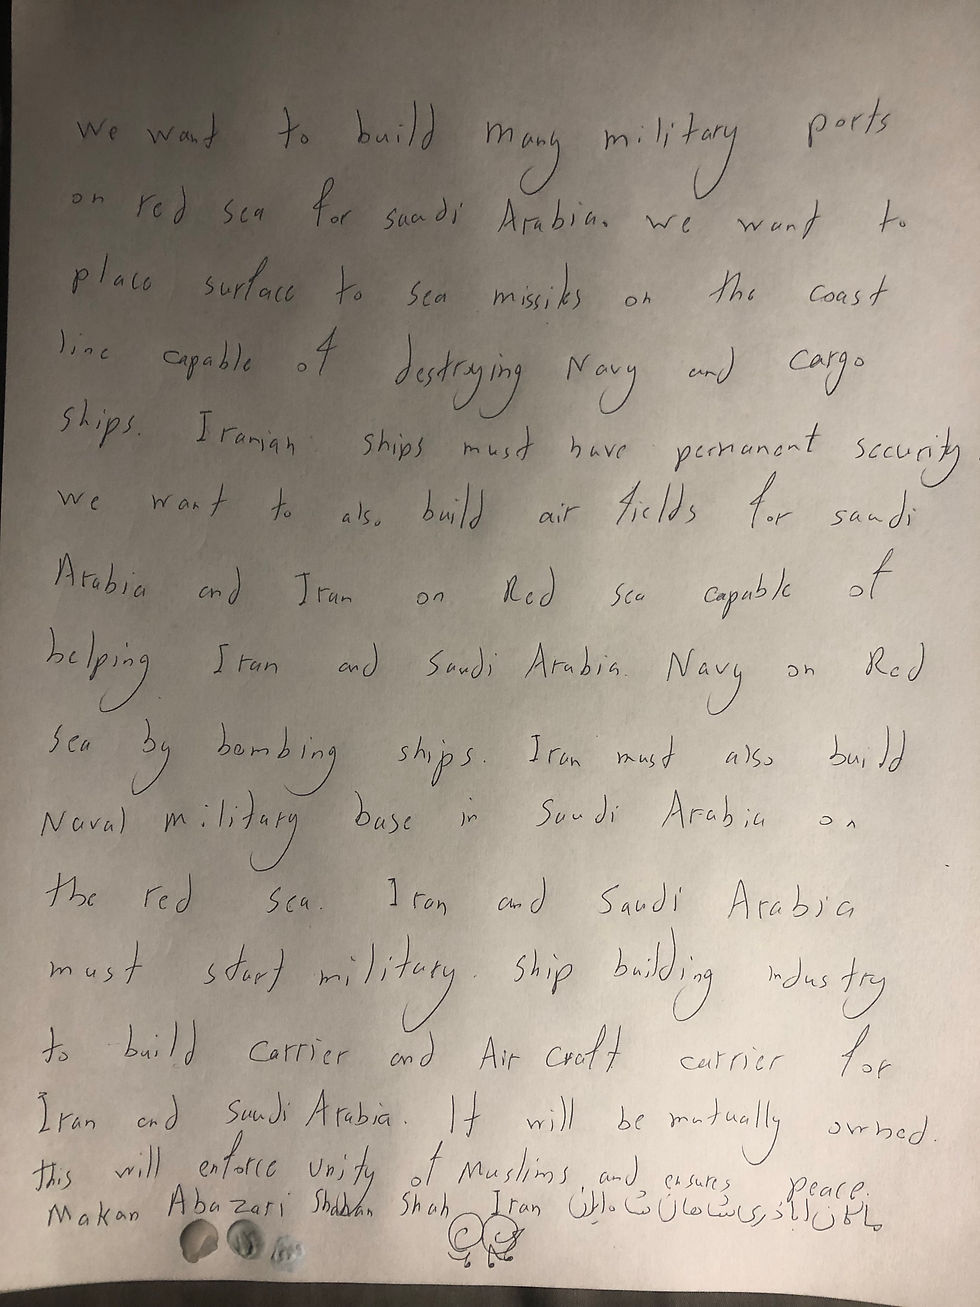 We want to build many military ports
on red sea for saudi Arabia. we want to
place surface to sea missiles on the coast
line capable of destrying Navy and cargo
ships. Iranian ships must have permanent security
we want to also build air fields for saudi
Arabia and Iran on Red sea capable of
helping Iran and Saudi Arabia Navy on Red
sea by bombing ships. Iran must also build
Naval military base in Saudi Arabia on
the red sea. Iran and Saudi Arabia
must start military. ship building industry
to build carrier and Air craft carrier for
Iran and Saudi Arabia. It will be mutually owned.
this will enforce unity of Muslims and ensures peace.
Makan Abazari Shahan Shah Iran ماكان اباذری شاهان شاه ایران